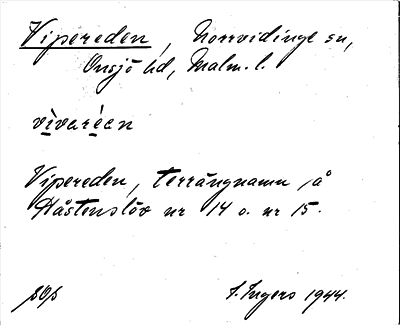 Vipereden, Norrvidinge sn,
Onsjö hd, Malm. l.
vivaréen
Vipereden, terrängnamn på
Hästenslöv nr 14 o. nr 15.
I. Ingers 1944.